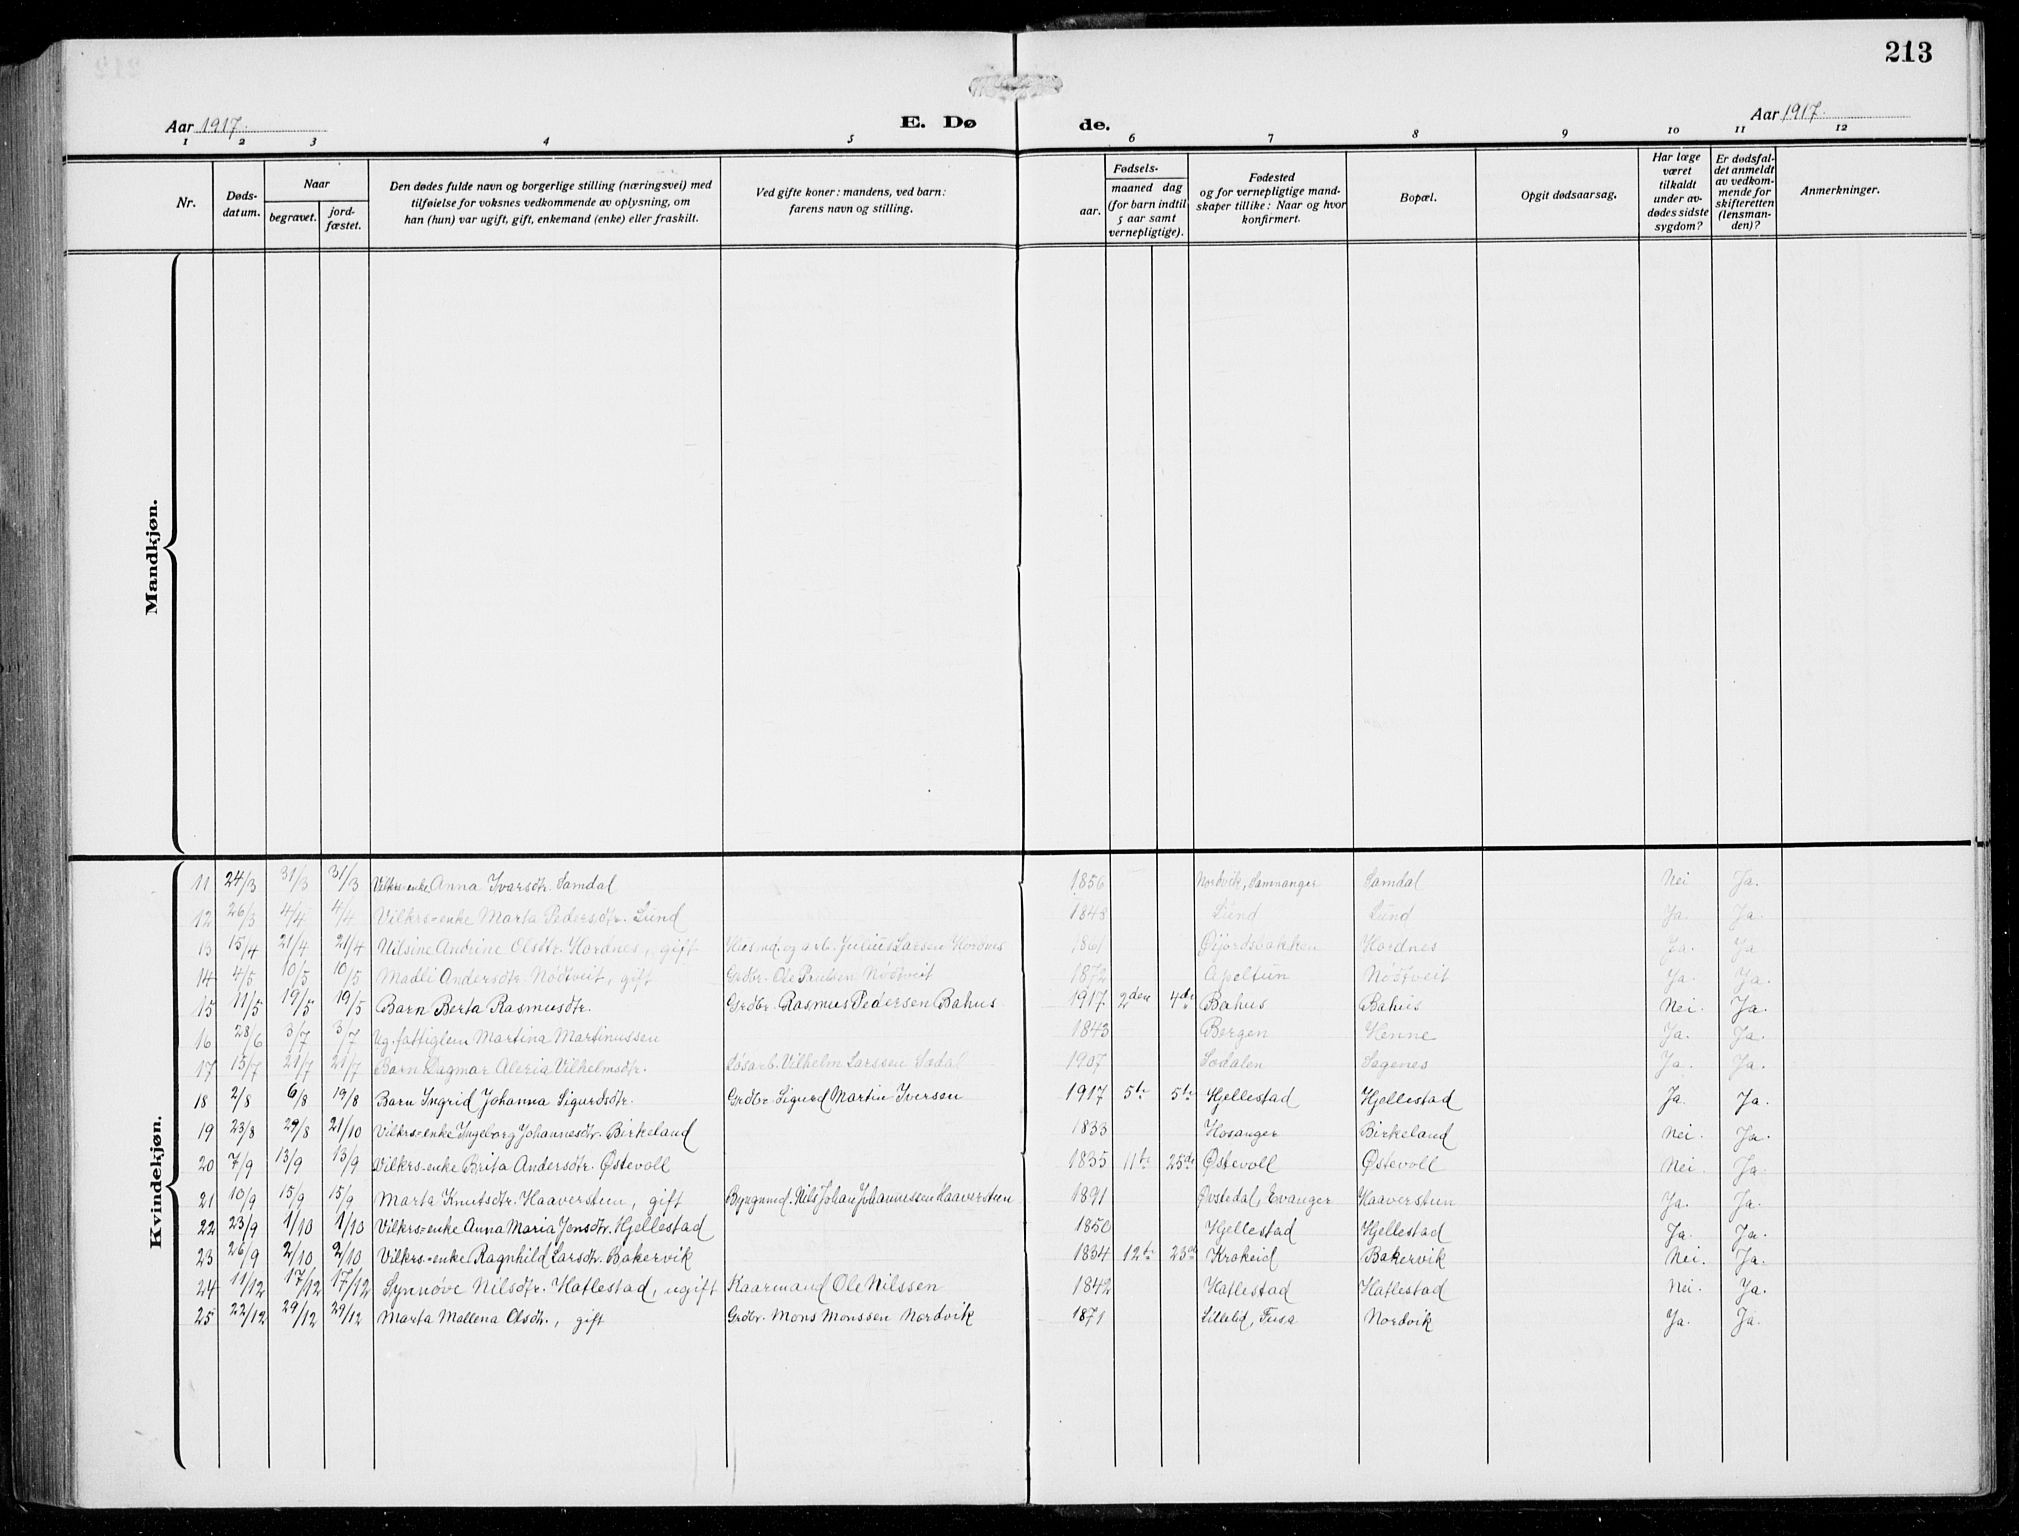 213
Aar 1917.
E. Dø
de.
Aar 1917.
1 2 3 4 5 6 7 8 9 10 11 12
Nr.
Døds-
datum.
Naar
begravet.
jord-
fæstet.
Den dødes fulde navn og borgerlige stilling (næringsvei) med
tilføielse for voksnes vedkommende av oplysning, om
han (hun) var ugift, gift, enkemand (enke) eller fraskilt.
Ved gifte koner: mandens, ved barn:
farens navn og stilling.
Fødsels-
aar.
maaned dag
(for barn indtil
5 aar samt
vernepligtige).
Fødested
og for vernepligtige mand-
skaper tillike: Naar og hvor
konfirmert.
Bopæl.
Opgit dødsaarsag.
Har læge
været
tilkaldt
under av-
dødes sidste
sygdom?
Er dødsfal-
det anmeldt
av vedkom-
mende for
skifteretten
(lensman-
den)?
Anmerkninger.
Mandkjøn.
Kvindekjøn.
11 24/3 31/3 31/3 Vilkrs-enke Anna Ivarsdtr. Samdal 1856 Nordvik, Samnanger Samdal Nei Ja.
12 26/3 4/4 4/4 Vilkrs-enke Marta Pedersdtr. Lund 1848 Lund Lund Ja. Ja.
13 15/4 21/4 21/4 Nilsine Andrine Olsdtr. Hordnes, gift Husmd. og arb. Julius Larsen Hordnes 1861 Øijordsbakken Hordnes Ja. Ja
14 4/5 10/5 10/5 Madli Andersdtr. Nödtveit, gift Grdbr. Ole Paulsen Nödtveit 1872 Apeltun Nödtveit Ja. Ja.
15 11/5 19/5 19/5 Barn Berta Rasmusdtr. Grdbr. Rasmus Pedersen Bahus 1917 2den 4de Bahus Bahus Nei. Ja.
16 28/6 3/7 3/7 Ug. fattiglem Martina Martinussen 1843 Bergen Henne Ja. Ja.
17 15/7 21/7 21/7 Barn Dagmar Aleria Vilhelmsdtr. Løsarb. Vilhelm Larssen Sædal 1907 Sædalen Sagenes Ja. Ja.
18 2/8 6/8 19/8 Barn Ingrid Johanna Sigurdsdtr. Grdbr. Sigurd Martin Iversen 1917 5te 5te Hjellestad Hjellestad Ja. Ja.
19 23/8 29/8 21/10 Vilkrs-enke Ingeborg Johannesdtr. Birkeland 1833 Hosanger Birkeland Nei. Ja.
20 7/9 13/9 13/9 Vilkrs-enke Brita Andersdtr. Østevoll 1835 11te 25de Østevoll Østevoll Nei. Ja.
21 10/9 15/9 15/9 Marta Knutsdtr. Haaverstun, gift Bygnmd. Nils Johan Johannessen Haaverstun 1891 Øvstedal, Evanger Haaverstun Ja. Ja.
22 23/9 1/10 1/10 Vilkrs-enke Anna Maria Jensdtr. Hjellestad 1850 Hjellestad Hjellestad Ja. Ja.
23 26/9 2/10 2/10 Vilkrs-enke Ragnhild Larsdtr. Bakervik 1834 12te 23de Krokeid Bakervik Nei. Ja.
24 11/12 17/12 17/12 Synnöve Nilsdtr. Hatlestad, ugift Kaarmand Ole Nilssen 1842 Hatlestad Hatlestad Nei. Ja.
25 22/12 29/12 29/12 Marta Mallena Olsdtr., gift Grdbr. Mons Monssen Nordvik 1871 Fusa Nordvik Ja. Ja.